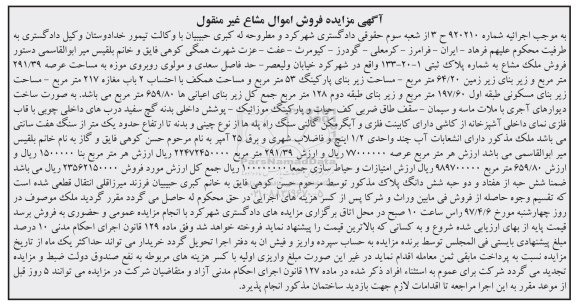 آگهی مزایده فروش اموال مشاع غیر منقول
به موجب اجرائیه شماره ۹۲۰۲۱۰ ح ۳ از شعبه سوم حقوقی دادگستری شهرکرد و مطروحه له کبری حبیبیان با وکالت تیمور خدادوستان وکیل دادگستری به
طرفیت محکوم علیهم فرهاد - ایران - فرامرز - کرمعلی - گودرز - کیومرث - عفت - عزت شهرت همگی کوهی فایق و خانم بلقیس میر ابوالقاسمی دستور
فروش ملک مشاع به شماره پلاک ثبتی ۱-۱۳۳۰۲۰ واقع در شهرکرد خیابان ولیعصر- حد فاصل سعدی و مولوی روبروی موزه به مساحت عرصه ۲۹۱/۳۹
متر مربع و زیر بنای زیر زمین ۶۴/۲۰ متر مربع - مساحت زیر بنای پارکینگ ۵۳ متر مربع و مساحت همکف با احتساب ۲ باب مغازه ۲۱۷ متر مربع - مساحت
زیر بنای مسکونی طبقه اول ۱۹۷/۶۰ متر مربع و زیر بنای طبقه دوم ۱۲۸ متر مربع جمع کل زیر بنای اعیانی ها ۶۵۹/۸۰ متر مربع می باشد. به صورت ساخت
دیوارهای آجری با ملات ماسه و سیمان - سقف طاق ضربی کف حیات و پارکینگ موزائیک - پوشش داخلی بدنه گچ سفید درب های داخلی چوبی با قاب
فلزی نمای داخلی آشپزخانه از کاشی دارای کابینت فلزی و آبگرمکن گالنی سنگ راه پله ها از نوع چینی و بدنه تا ارتفاع حدود یک متر از سنگ هفت سانتی
می باشد ملک مذکور دارای انشعابات آب چند واحدی ۱/۲ اینچ و فاضلاب شهری و برق ۲۵ آمپر به نام مرحوم حسن کوهی فایق و گاز به نام خانم بلقیس
میر ابوالقاسمی می باشد ارزش هر متر مربع عرصه ۷۷۰۰۰۰۰۰ ریال و ارزش ۲۹۱/۳۹ متر مربع ۲۲۴۷۲۴۵۰۰۰۰ ریال ارزش هر متر مربع بنا ۱۵۰۰۰۰۰ ریال و
ارزش ۶۵۹/۸۰ متر مربع ۹۸۹۷۰۰۰۰۰ ریال ارزش امتیازات و حیاط سازی جمعا ۱۰۰۰۰۰۰۰۰ ریال جمع کل ارزش مورد فروش ۲۳۵۶۲۱۵۰۰۰۰ ریال می باشد
ضمنا شش حبه از هفتاد و دو حبه شش دانگ پلاک مذکور توسط مرحوم حسن کوهی فایق به خانم کبری حبیبیان فرزند میرزاقلی انتقال قطعی شده است
که تقسیم وجوه حاصله از فروش فی مابین وراث و شرکا پس از کسر هزینه های اجرائی در حق محکوم له حاصل می گردد مقرر گردید ملک موصوف در
روز چهارشنبه مورخ ۹۷/۴/۶ راس ساعت ۱۰ صبح در محل اتاق برگزاری مزایده های دادگستری شهرکرد با انجام مزایده عمومی و حضوری به فروش برسد
قیمت پایه از بهای ارزیابی شده شروع و به کسانی که بالاترین قیمت را پیشنهاد نماید فروخته خواهد شد وفق ماده ۱۲۹ قانون اجرای احکام مدنی ۱۰ درصد
مبلغ پیشنهادی بایستی فی المجلس توسط برنده مزایده به حساب سپرده واریز و فیش ان به دفتر اجرا تحویل گردد خریدار می تواند حداکثر یک ماه از تاریخ
مزایده نسبت به پرداخت مابقی ثمن معامله اقدام نماید در غیر این صورت مبلغ واریزی اولیه با کسر هزینه های مربوطه به نفع صندوق دولت ضبط و مزایده
تجدید می گردد شرکت برای عموم به استثناء افراد ذکر شده در ماده ۱۲۷ قانون اجرای احکام مدنی آزاد و متقاضیان شرکت در مزایده می توانند ۵ روز قبل
از موعد مقرر به این اجرا مراجعه تا اقدامات لازم جهت بازدید ساختمان مذکور انجام پذیرد.